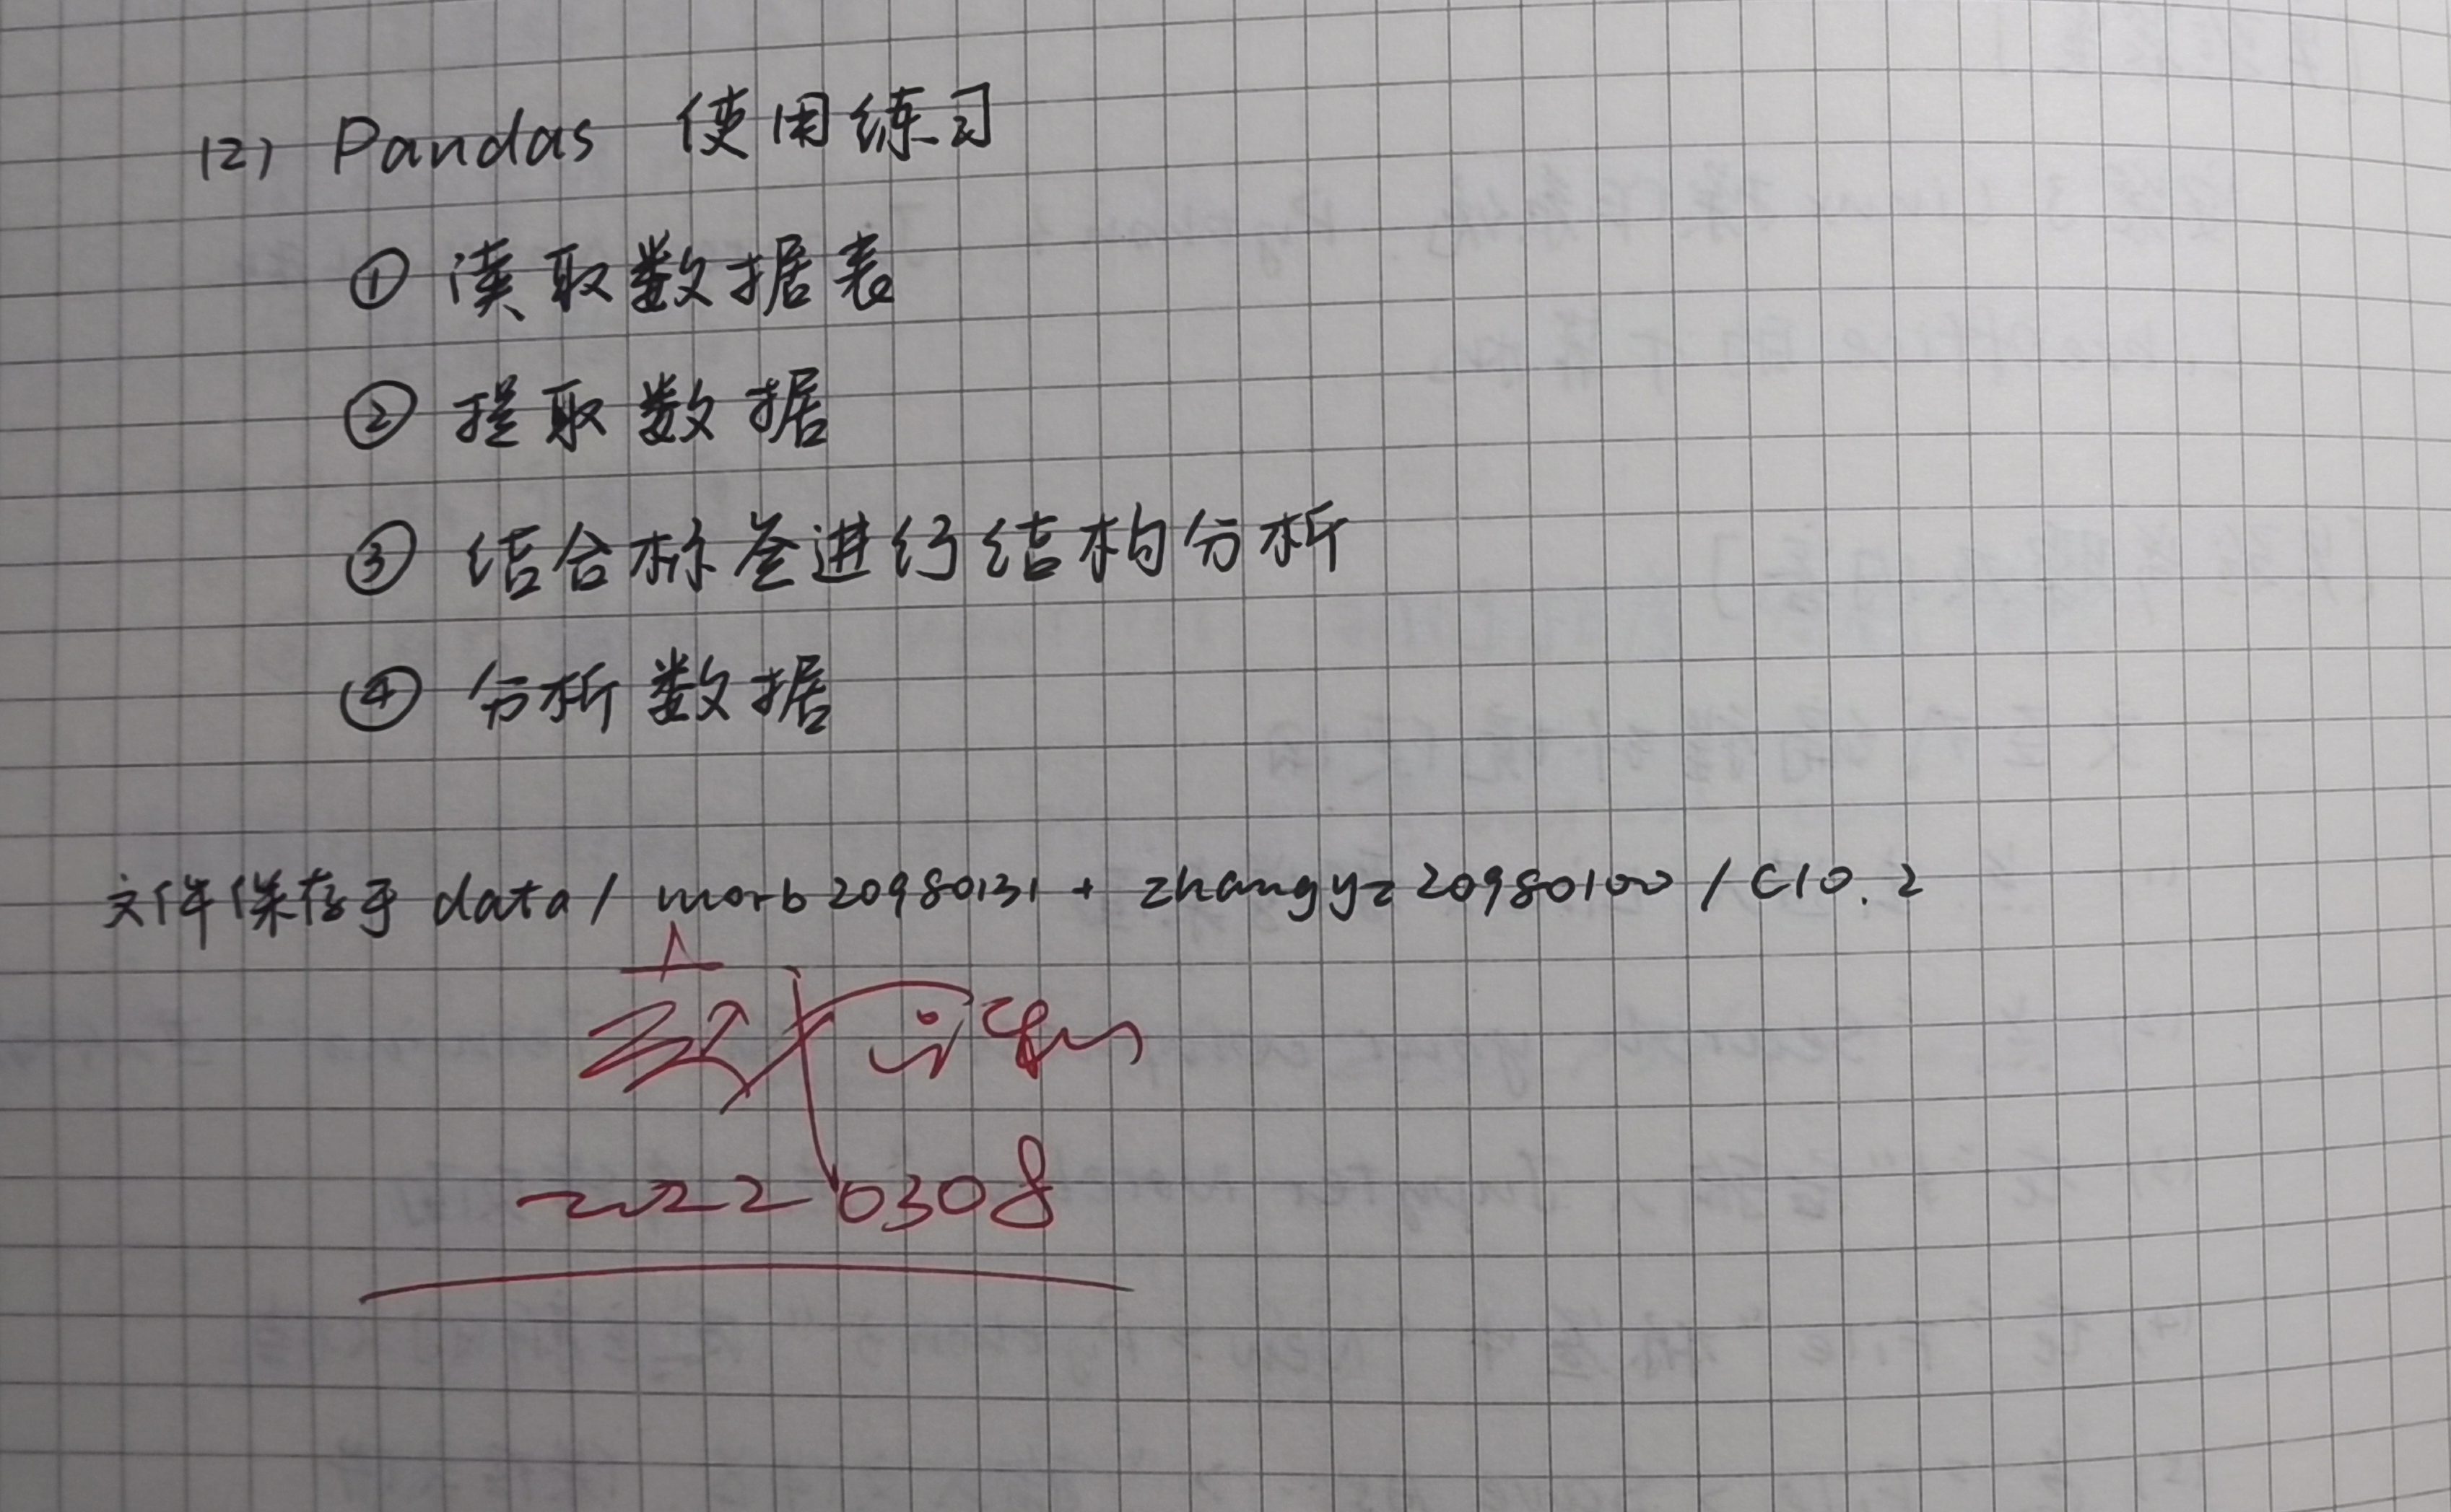 (2) Pandas 使用练习
① 读取数据表
② 提取数据
③ 结合标签进行结构分析
④ 分析数据
文件保存于 data / morb20980131 + zhangyz20980100 / C10.2
20220308